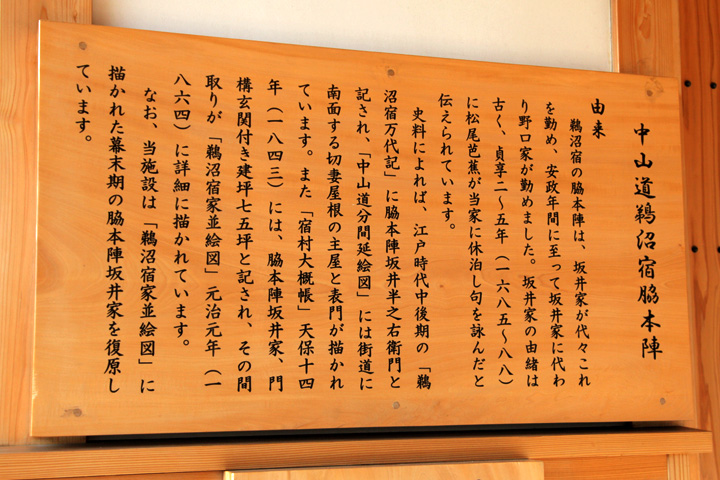 中山道鵜沼宿脇本陣
由来
鵜沼宿の脇本陣は、坂井家が代々これ
を勤め、安政年間に至って坂井家に代わ
り野口家が勤めました。坂井家の由緒は
古く、貞享二～五年（一六八五～八八）
に松尾芭蕉が当家に休泊し句を詠んだと
伝えられています。
史料によれば、江戸時代中後期の「鵜
沼宿万代記」に脇本陣坂井半之右衛門と
記され、「中山道分間延絵図」には街道に
南面する切妻屋根の主屋と表門が描かれ
ています。また「宿村大概帳」天保十四
年（一八四三）には、脇本陣坂井家、門
構玄関付き建坪七五坪と記され、その間
取りが「鵜沼宿家並絵図」元治元年（一
八六四）に詳細に描かれています。
なお、当施設は「鵜沼宿家並絵図」に
描かれた幕末期の脇本陣坂井家を復原し
ています。